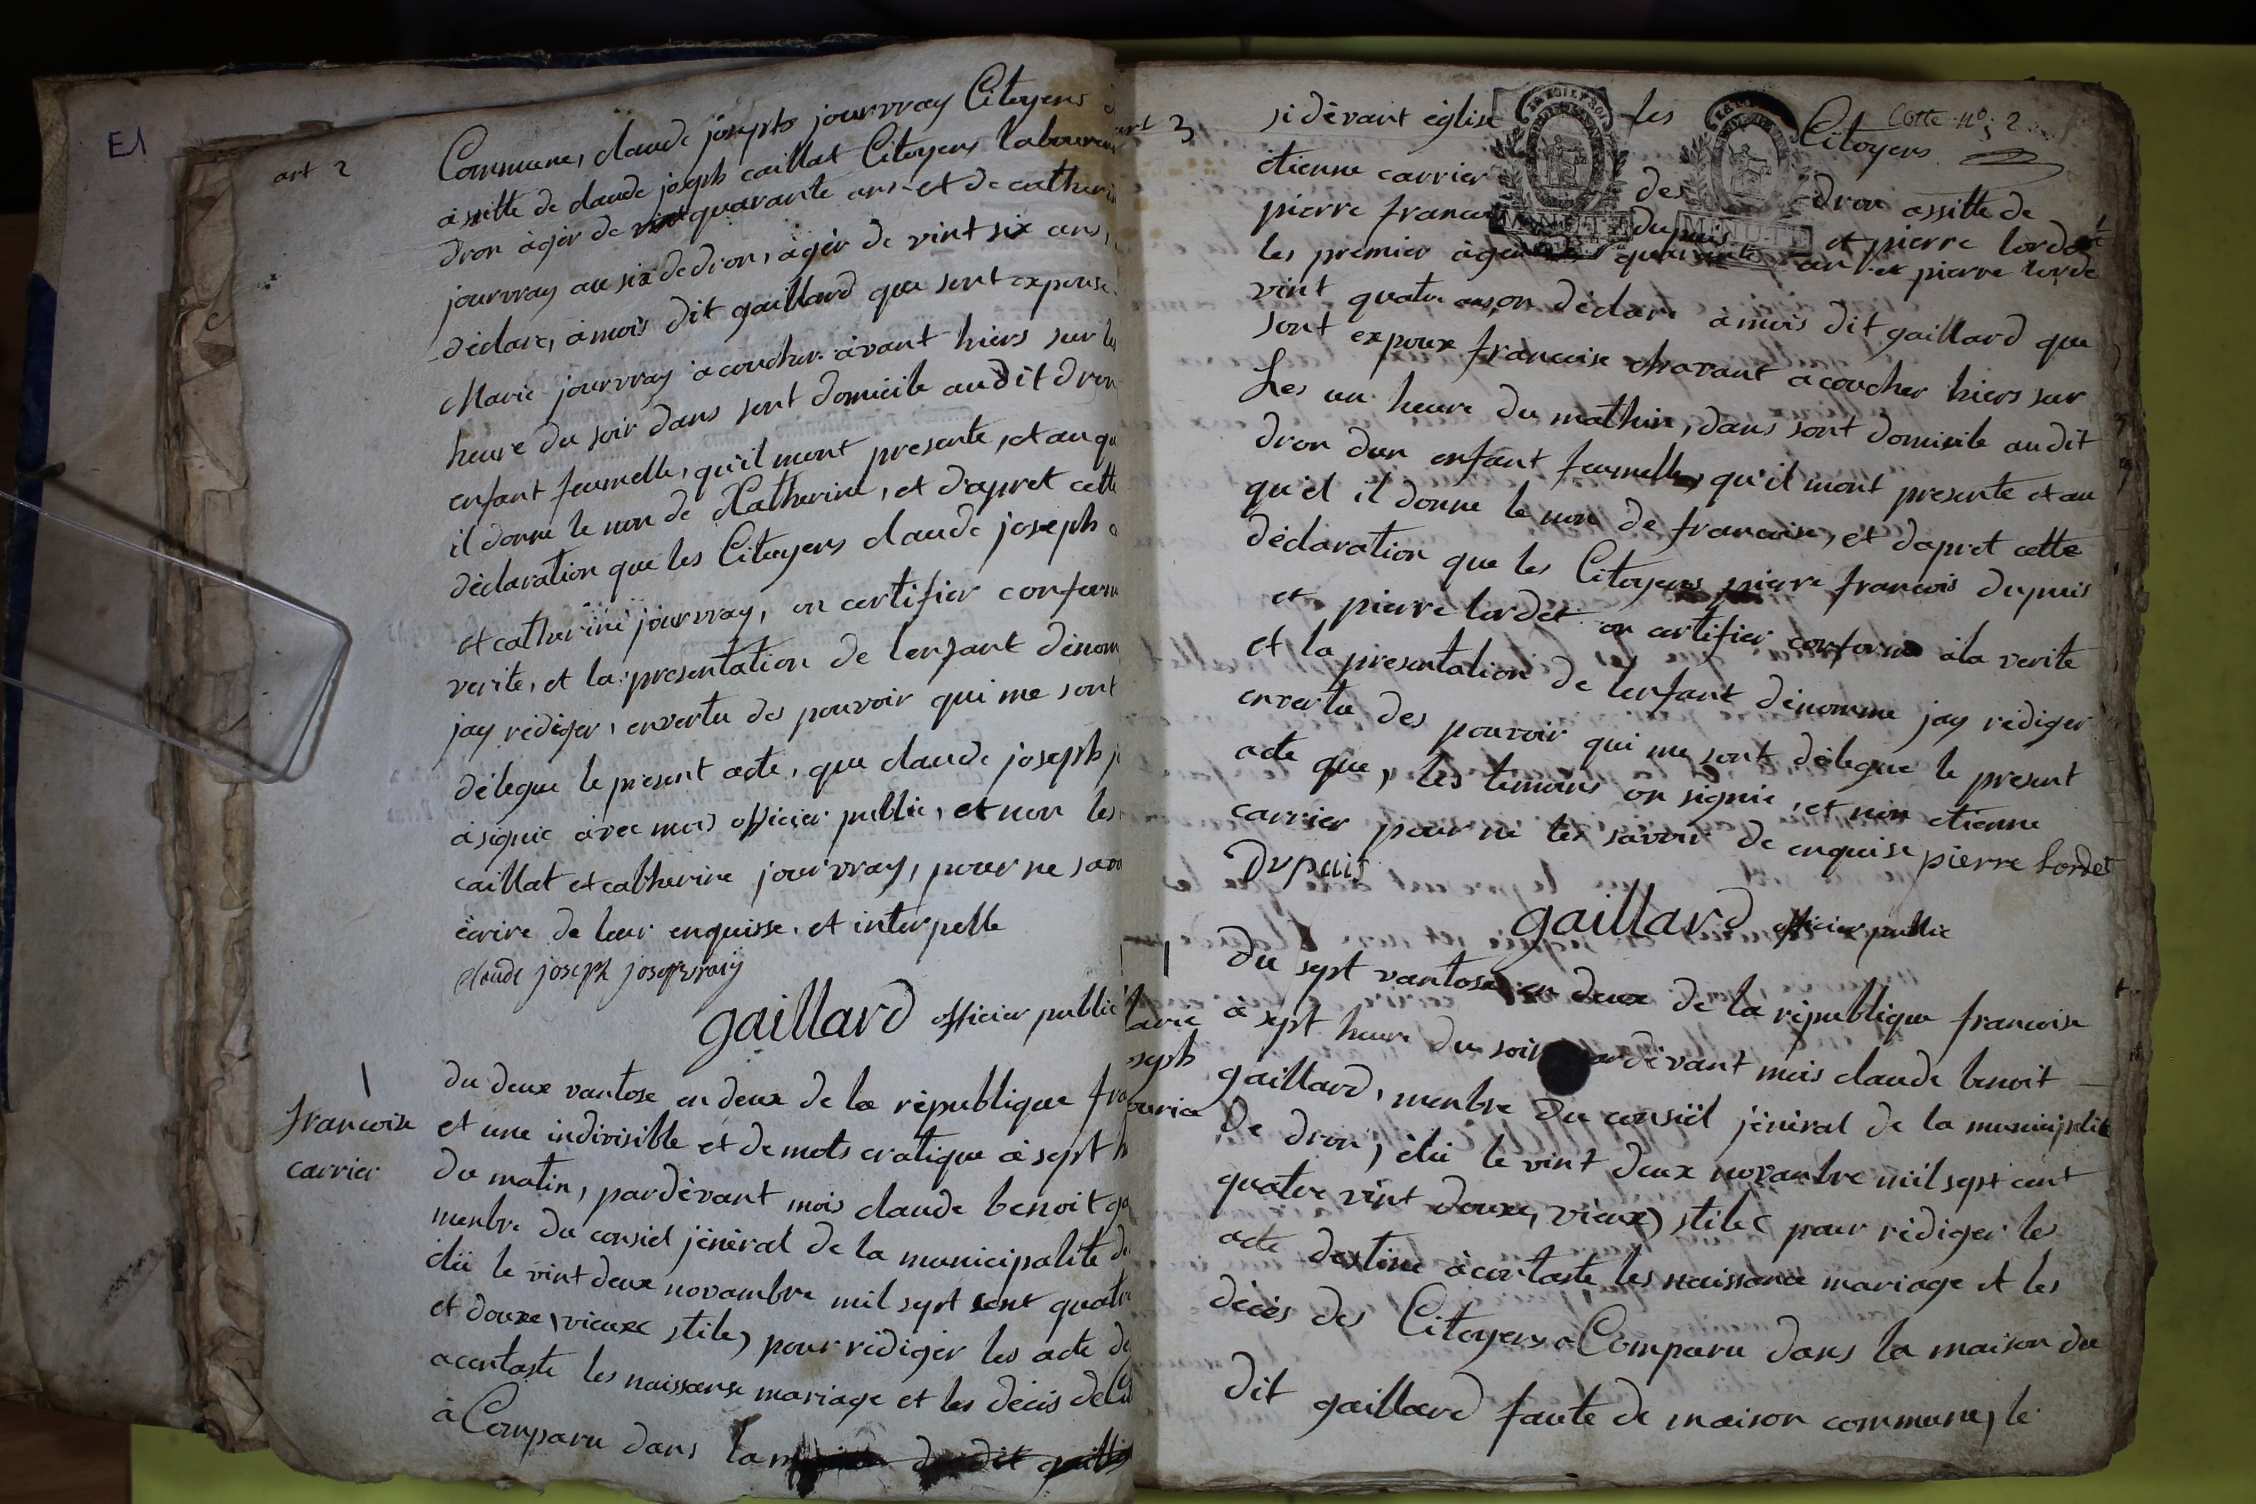 E1
art 2
Commune, claude joseph jourvray Citoyens
assitte de claude joseph caillat Citoyens laboureur
dron àgèr de quarante ans et de catheri
jourvray au si de dron, àgèr de vint six ans,
dèclare, àmois dit gaillard que sont expouse
Marie jourvray acoucher àvant hiers sur les
heure du soir dans sont domicile audit dron
enfant feumelle, qu'il mont presente, et au qu
il donne le non de Catherine, et dapret cette
dèclaration que les Citoyens claude joseph
et catherine jourvray, on certifier conform
verite, et la presentation de lenfant dènom
jay rèdiger, envertu des pouvoir qui me sont
dèlegue le present acte, que claude joseph j
àsignie àvec mois officier public, et non les
caillat et catherine jourvray, pour ne savo
ècrire de leur enquisse, et interpelle
claude joseph jourvray
gaillard officier public
1
francoise
carrier
du deux vantose en deux de la rèpublique fra
et une indivisible et de mots cratique à sept h
du matin, pardèvant mois claude benoit ga
menbre du consiel jènèral de la municipalite de
èlü le vint deux novambre mil sept sent quatre
et douxe, vieuxe stile, pour rèdiger les acte de
acontaste les naissanse mariage et les dècis de Ci
à Comparu dans la
art 3
Cotte nº; 2
si dèvant èglise les Citoyens
ètienne carrier des dron assitte de
pierre francois dupuis et pierre lordet
les premier àger quarante an et pierre lorde
vint quatre ans, on dèclare àmois dit gaillard que
sont expoux francoise chavant acoucher hiers sur
Les un heure du mathin, dans sont domicile audit
dron dun enfant feumelle, qu'il mont presente et au
qu'el il donne le non de francoise, et dapret cette
dèclaration que les Citoyens pierre francois dupuis
et pierre lordet on certifier conforme àla verite
et la presentation de lenfant dènomme jay rèdiger
envertu des pouvoir qui me sont dèlegue le present
acte que, les temoins on signie, et non etienne
carrier pour ne les savoir de enquise pierre Lordet
Dupuis
gaillard officier public
1
du sept vantose en deux de la rèpublique francoise
à sept heure du soir pardèvant mois claude benoit
gaillard, menbre du consiël jènèral de la municipalite
De dron, èlü le vint deux novambre mil sept cent
quatre vint douxe, vieux, stile, pour rèdiger les
acte destine àcontaste les naissance mariage et les
dècès des Citoyens a Comparu dans la maison du
dit gaillard faute de maison commune, le